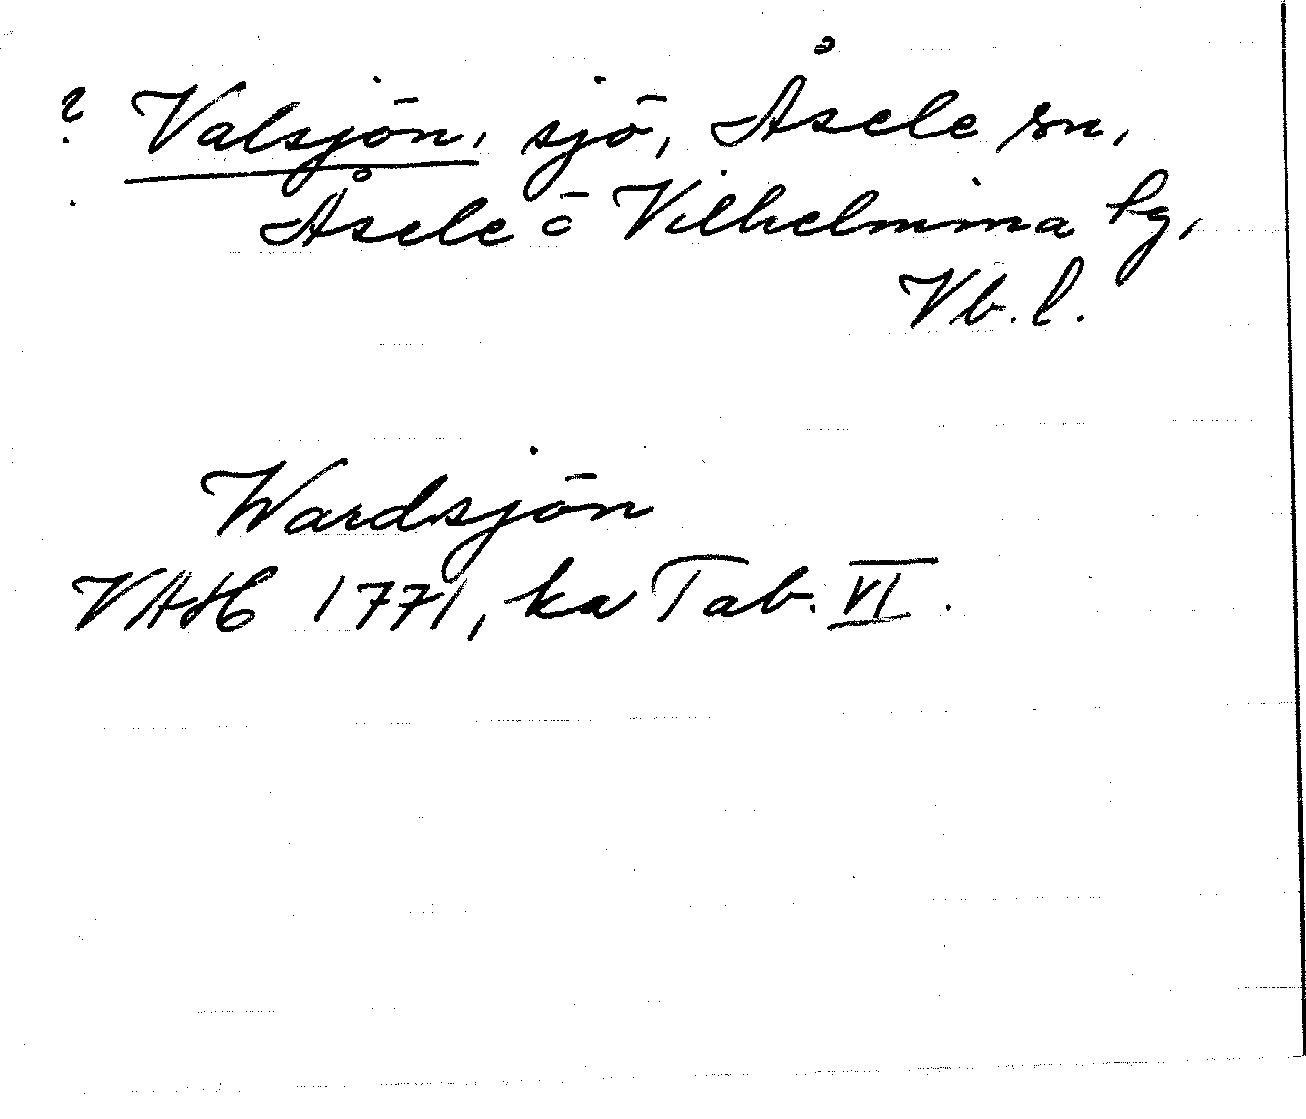 ? Valsjön, sjö, Åsele sn,
Åsele o Vilhelmina tg,
Vb. l.
Wardsjön
VAH 1771, ka Tab. VI.